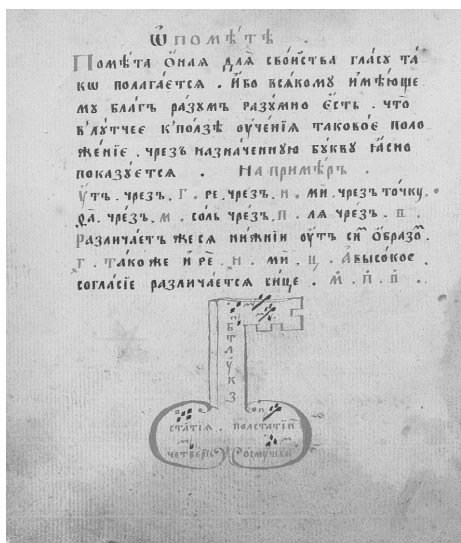 Ѿ помѣ́тѣ
Помѣ́та о́ная для̀ сво́йства гла́су та́
кѡ полага́ется . И́бо вся́кому имѣ́юще
му бла́гъ ра́зумъ разу́мно е́сть . что̀
в'лу́тчее к'по́лзѣ оуче́нїя таково́е поло
же́нїе . чрез̾ назначе́нную бу́кву ꙗ́сно
пока́зуется . На примѣ́ръ .
У҆́тъ . чрез̾ . Г . ре . чрез̾ . н . ми . чрез̾ то́чку .
фа . чре́зъ . м . со́ль чрез̾ . п . ля чре́зъ . в .
Различа́етъ же ся ни́жнїи оу́тъ си́ О́бразо
г . та́коже и ре . н . ми . ц . А высо́кое
согла́сїе различа́ется си́це . м . п . в .
КЛЮЧЪ
ста́тїя . полста́тїи
че́тверть осму́шка